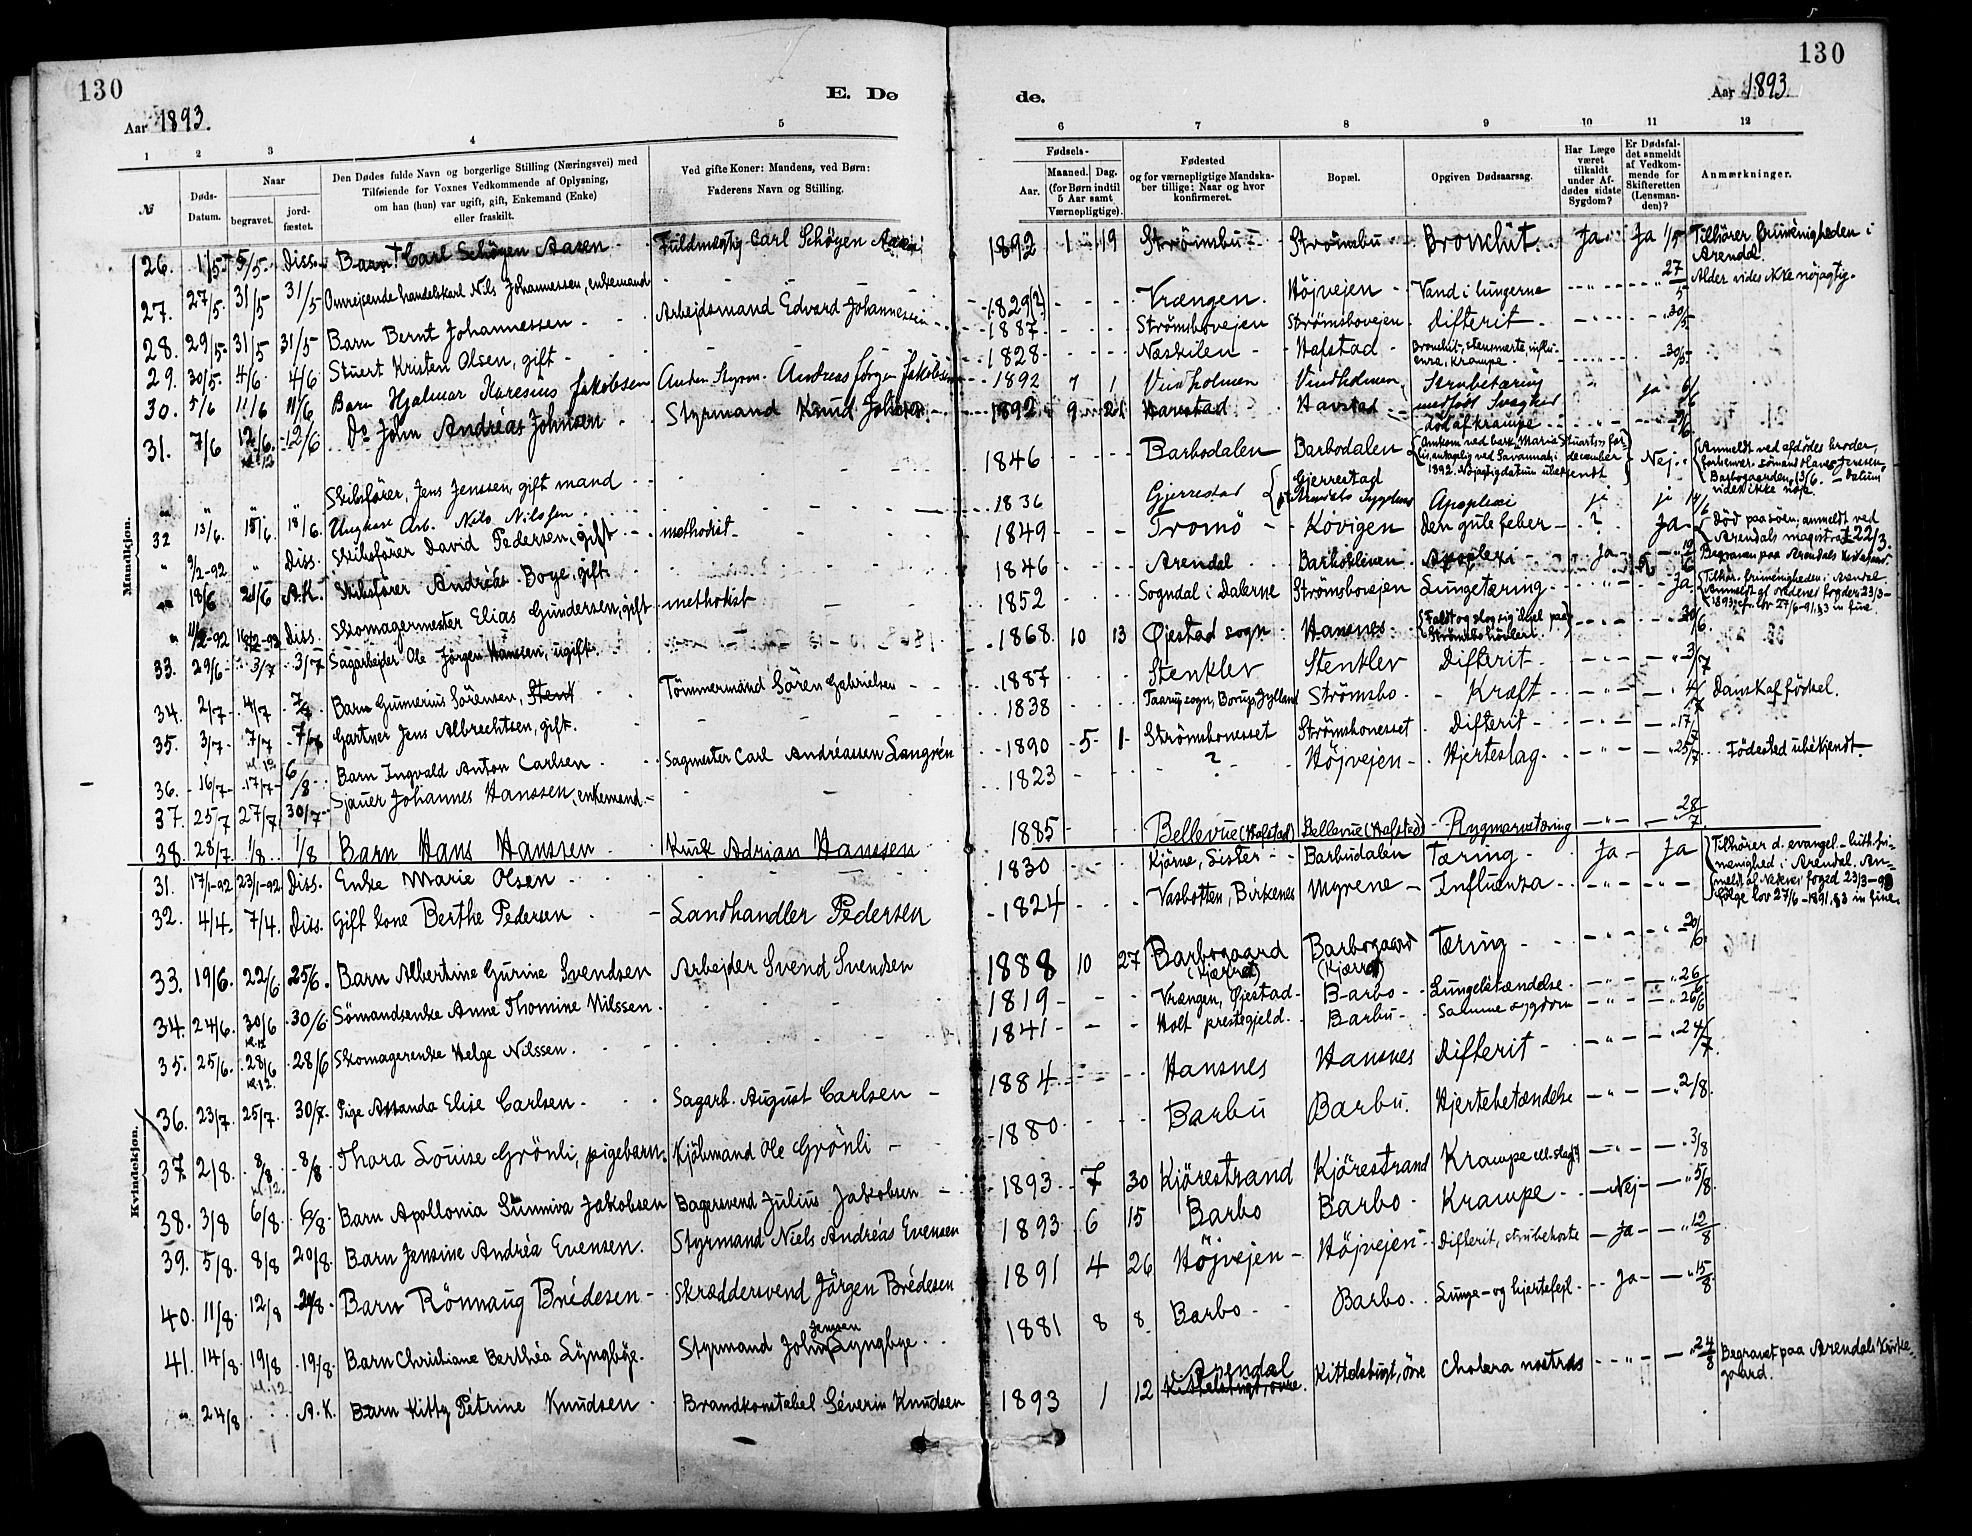 130
130
E. Dø
de.
Aar 1893.
Aar 1893.
1 2 3 4 5 6 7 8 9 10 11 12
№
Døds-Datum.
Naar
begravet.
jord-fæstet.
Den Dødes fulde Navn og borgerlige Stilling (Næringsvei) med
Tilføiende for Voxnes Vedkommende af Oplysning,
om han (hun) var ugift, gift, Enkemand (Enke)
eller fraskilt.
Ved gifte Koner: Mandens, ved Børn:
Faderens Navn og Stilling.
Fødsels-
Aar.
Maaned. Dag.
(for Børn indtil
5 Aar samt
Værnepligtige).
Fødested
og for værnepligtige Mandska-
ber tillige: Naar og hvor
konfirmeret.
Bopæl.
Opgiven Dødsaarsag.
Har Læge
været
tilkaldt
under Af-
dødes sidste
Sygdom?
Er Dødsfal-
det anmeldt
af Vedkom-
mende for
Skifteretten
(Lensman-
den)?
Anmærkninger.
Mandkjøn.
26. 1/5 5/5 Diss. Barn Carl Schøyen Aasen Fuldmægtig Carl Schøyen Aasen 1892 1 19 Strømsbu Strømsbu Bronchit Ja Ja 1/5 Tilhører frimenigheden i Arendal.
27. 27/5 31/5 31/5 Omreisende handelskarl Nils Johannessen, enkemand 1829(?) Vrængen. Højvejen Vand i lungerne 27/5 Alder vides ikke nøjagtig.
28. 29/5 31/5 31/5 Barn Bernt Johannessen Arbejdsmand Edvard Johannessen 1887 Strømsbovejen Strømsbovejen Difterit 30/5
29. 30/5 4/6 4/6 Stuert Kristen Olsen, gift 1828 Næskilen Hafstad 30/5
30. 5/6 11/6 11/6 Barn Hjalmar Jakobsen Anden Styrm. Andreas Jørgen Jakobsen 1892 7 1 Vindholmen Vindholmen Strubetæring ja 6/6
31. 7/6 12/6 kl. 12 12/6 Do John Andréas Johnsen Styrmand Knud Johnsen 1892 9 21 Havstad Havstad medfødt Svaghed død af krampe
Skibsfører, Jens Jenssen, gift mand 1846 Barbodalen Barbodalen Nej Anmeldt ved afdødes broder,
32 13/6 18/6 18/6 Ungkarl Arb. Nils Nilssen 1836 Gjerrestad Gjerrestad Apoplexi ja ja 14/6
" 9/2-92 " Diss. Skibsfører David Pedersen, gift methodist 1849 Tromø Kovigen Den gule feber ? Ja Død paa søen, anmeldt ved Arendals magistrat 22/3.
" 18/6 21/6 A.K. Skibsfører Andréas Boye, gift 1846 Arendal Barbokleven Apoplexi Ja Begraven paa Arendals kirkegaard.
" Diss. Skomagermester Elias Gundersen, gift methodist 1852 Sogndal i Dalerne Strømsbovejen Lungetæring Ja Tilhør. frimenigheden i Arendal
33. 29/6 3/7 3/7 Sagarbejder Ole Jørgen Hanssen, ugift 1868 10 13 Øjestad sogn Hansnes Faldt og slog sig ihjel paa Strømsbo 30/6
34. 2/7 4/7 Barn Gunerius Sørensen, Tømmermand Søren Gabrielsen 1887 Stenklev Stenklev Difterit 3/7
35. 3/7 7/7 Gartner Jens Albrechtsen, gift. 1838 Taarup sogn, Borup, Jylland Strømsbo Kræft 4/7 Dansk af fødsel.
36. 16/7 17/7 6/8 Barn Ingvald Anton Carlsen Sagmester Carl Andréassen Langvén 1890 5 1 Strømsbonesset Strømsbonesset Difterit 17/7
37. 25/7 27/7 30/7 Sjauer Johannes Hanssen, enkemand 1823 ? Højvejen Hjerteslag 25/7 Fødested ubekjendt
38. 28/7 1/8 1/8 Barn Hans Hanssen Kusk Adrian Hanssen 1885 Bellevue (Hafstad) Bellevue (Hafstad) Rygmarvstæring 28/7
Kvindekjøn.
31. 17/1-92 23/1-92 Diss. Enke Marie Olsen 1830 Kjørne, Sister Barbudalen Tæring Ja Ja Tilhører d. evangel.-luth. frimenighed i Arendal.
32. 4/4. 7/4. Diss. Gift kone Berthe Pedersen Landhandler Pedersen 1824 Vasbotten, Birkenes Myrene Influenza
33. 19/6 22/6 25/6. Barn Albertine Gurine Svendsen Arbejder Svend Svendsen 1888 10 27 Barbogaard (Kjærret) Barbogaard (Kjærret) Tæring 20/6
34. 24/6. 30/6 kl. 12 30/6 Sømandsenke Anne Thomine Nilssen. 1819 Vrængen, Øjestad Barbo Lungebetændelse 26/6
35. 25/6. 28/6 kl. 12. 28/6 Skomagerenke Helge Nilssen. 1841 Holt prestegjeld. Barbu Samme sygdom 26/6
36. 23/7 25/7. 30/7. Pige Amanda Elise Carlsen Sagarb. August Carlsen 1884 Hansnes Hansnes Difterit 24/7
37. 2/8. 8/8 kl. 12. 8/8 Thora Louise Grönli, pigebarn. Kjöbmand Ole Grönli 1880 Barbu Barbu. Hjertebetændelse 2/8.
38. 3/8 6/8 6/8. Barn Apollonia Sunniva Jakobsen Bagersvend Julius Jakobsen 1893 7 30 Kjörestrand Kjörestrand Krampe 3/8
39. 5/8. 8/8 20/8. Barn Jensine Andréa Evensen. Styrmand Niels Andréas Evensen 1893 6 15 Barbo Barbo Krampe Nej 5/8
40. 11/8. 12/8 20/8. Barn Rönnaug Brédesen Skræddersvend Jörgen Brédesen 1891 4 26 Højvejen Højvejen Difterit, strubehoste Ja 12/8
41. 14/8. 19/8 kl. 12 19/8. Barn Christiane Berthéa Lÿngbÿe. Styrmand John Jenssen Lyngbye 1881 8 8. Barbo Barbo Lunge- og hjertefejl. Ja 15/8
" 24/8 A.K. Barn Kitty Pétrine Knudsen Brandkonstabel Séverin Knudsen 1893 1 12 Arendal Kittelsbugt, øvre. Kittelsbugt, øvre Cholera nostras 24/8 Begravet paa Arendals Kirkegaard.